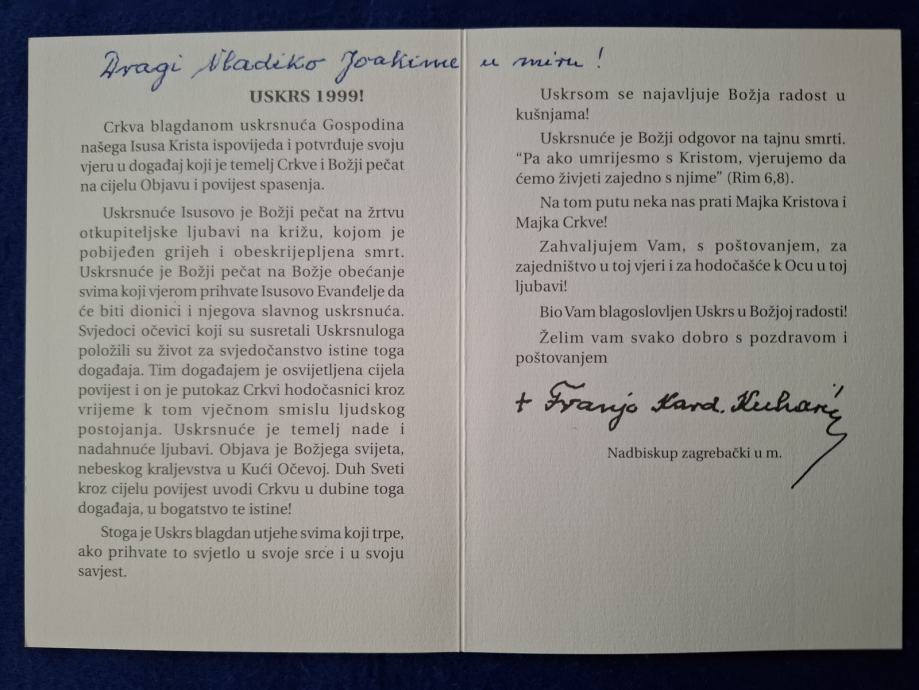 Dragi Vladiko Joakime u miru!
USKRS 1999!
Crkva blagdanom uskrsnuća Gospodina
našega Isusa Krista ispovijeda i potvrđuje svoju
vjeru u događaj koji je temelj Crkve i Božji pečat
na cijelu Objavu i povijest spasenja.
Uskrsnuće Isusovo je Božji pečat na žrtvu
otkupiteljske ljubavi na križu, kojom je
pobijeđen grijeh i obeskrijepljena smrt.
Uskrsnuće je Božji pečat na Božje obećanje
svima koji vjerom prihvate Isusovo Evanđelje da
će biti dionici i njegova slavnog uskrsnuća.
Svjedoci očevici koji su susretali Uskrsnuloga
položili su život za svjedočanstvo istine toga
događaja. Tim događajem je osvijetljena cijela
povijest i on je putokaz Crkvi hodočasnici kroz
vrijeme k tom vječnom smislu ljudskog
postojanja. Uskrsnuće je temelj nade i
nadahnuće ljubavi. Objava je Božjega svijeta,
nebeskog kraljevstva u Kući Očevoj. Duh Sveti
kroz cijelu povijest uvodi Crkvu u dubine toga
događaja, u bogatstvo te istine!
Stoga je Uskrs blagdan utjehe svima koji trpe,
ako prihvate to svjetlo u svoje srce i u svoju
savjest.
Uskrsom se najavljuje Božja radost u
kušnjama!
Uskrsnuće je Božji odgovor na tajnu smrti.
"Pa ako umrijesmo s Kristom, vjerujemo da
ćemo živjeti zajedno s njime" (Rim 6,8).
Na tom putu neka nas prati Majka Kristova i
Majka Crkve!
Zahvaljujem Vam, s poštovanjem, za
zajedništvo u toj vjeri i za hodočašće k Ocu u toj
ljubavi!
Bio Vam blagoslovljen Uskrs u Božjoj radosti!
Želim vam svako dobro s pozdravom i
poštovanjem
+ Franjo Kard. Kuharić
Nadbiskup zagrebački u m.